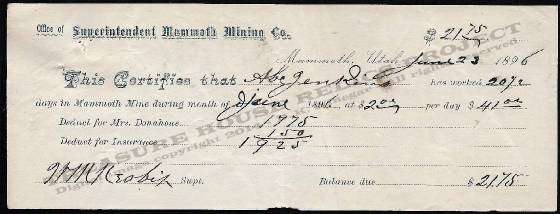 Office of Superintendent Mammoth Mining Co. $ 21 75
Mammoth, Utah, June 23 1896
This Certifies that Abe Jenkins has worked 20½
days in Mammoth Mine during month of June 1896 at $2.00 per day $41.00
Deduct for Mrs. Donahoue 17 75
Deduct for Insurance 1 50
19 25
Supt. Balance due $ 21.75
TREASURE HOUSE RELICS PROJECT